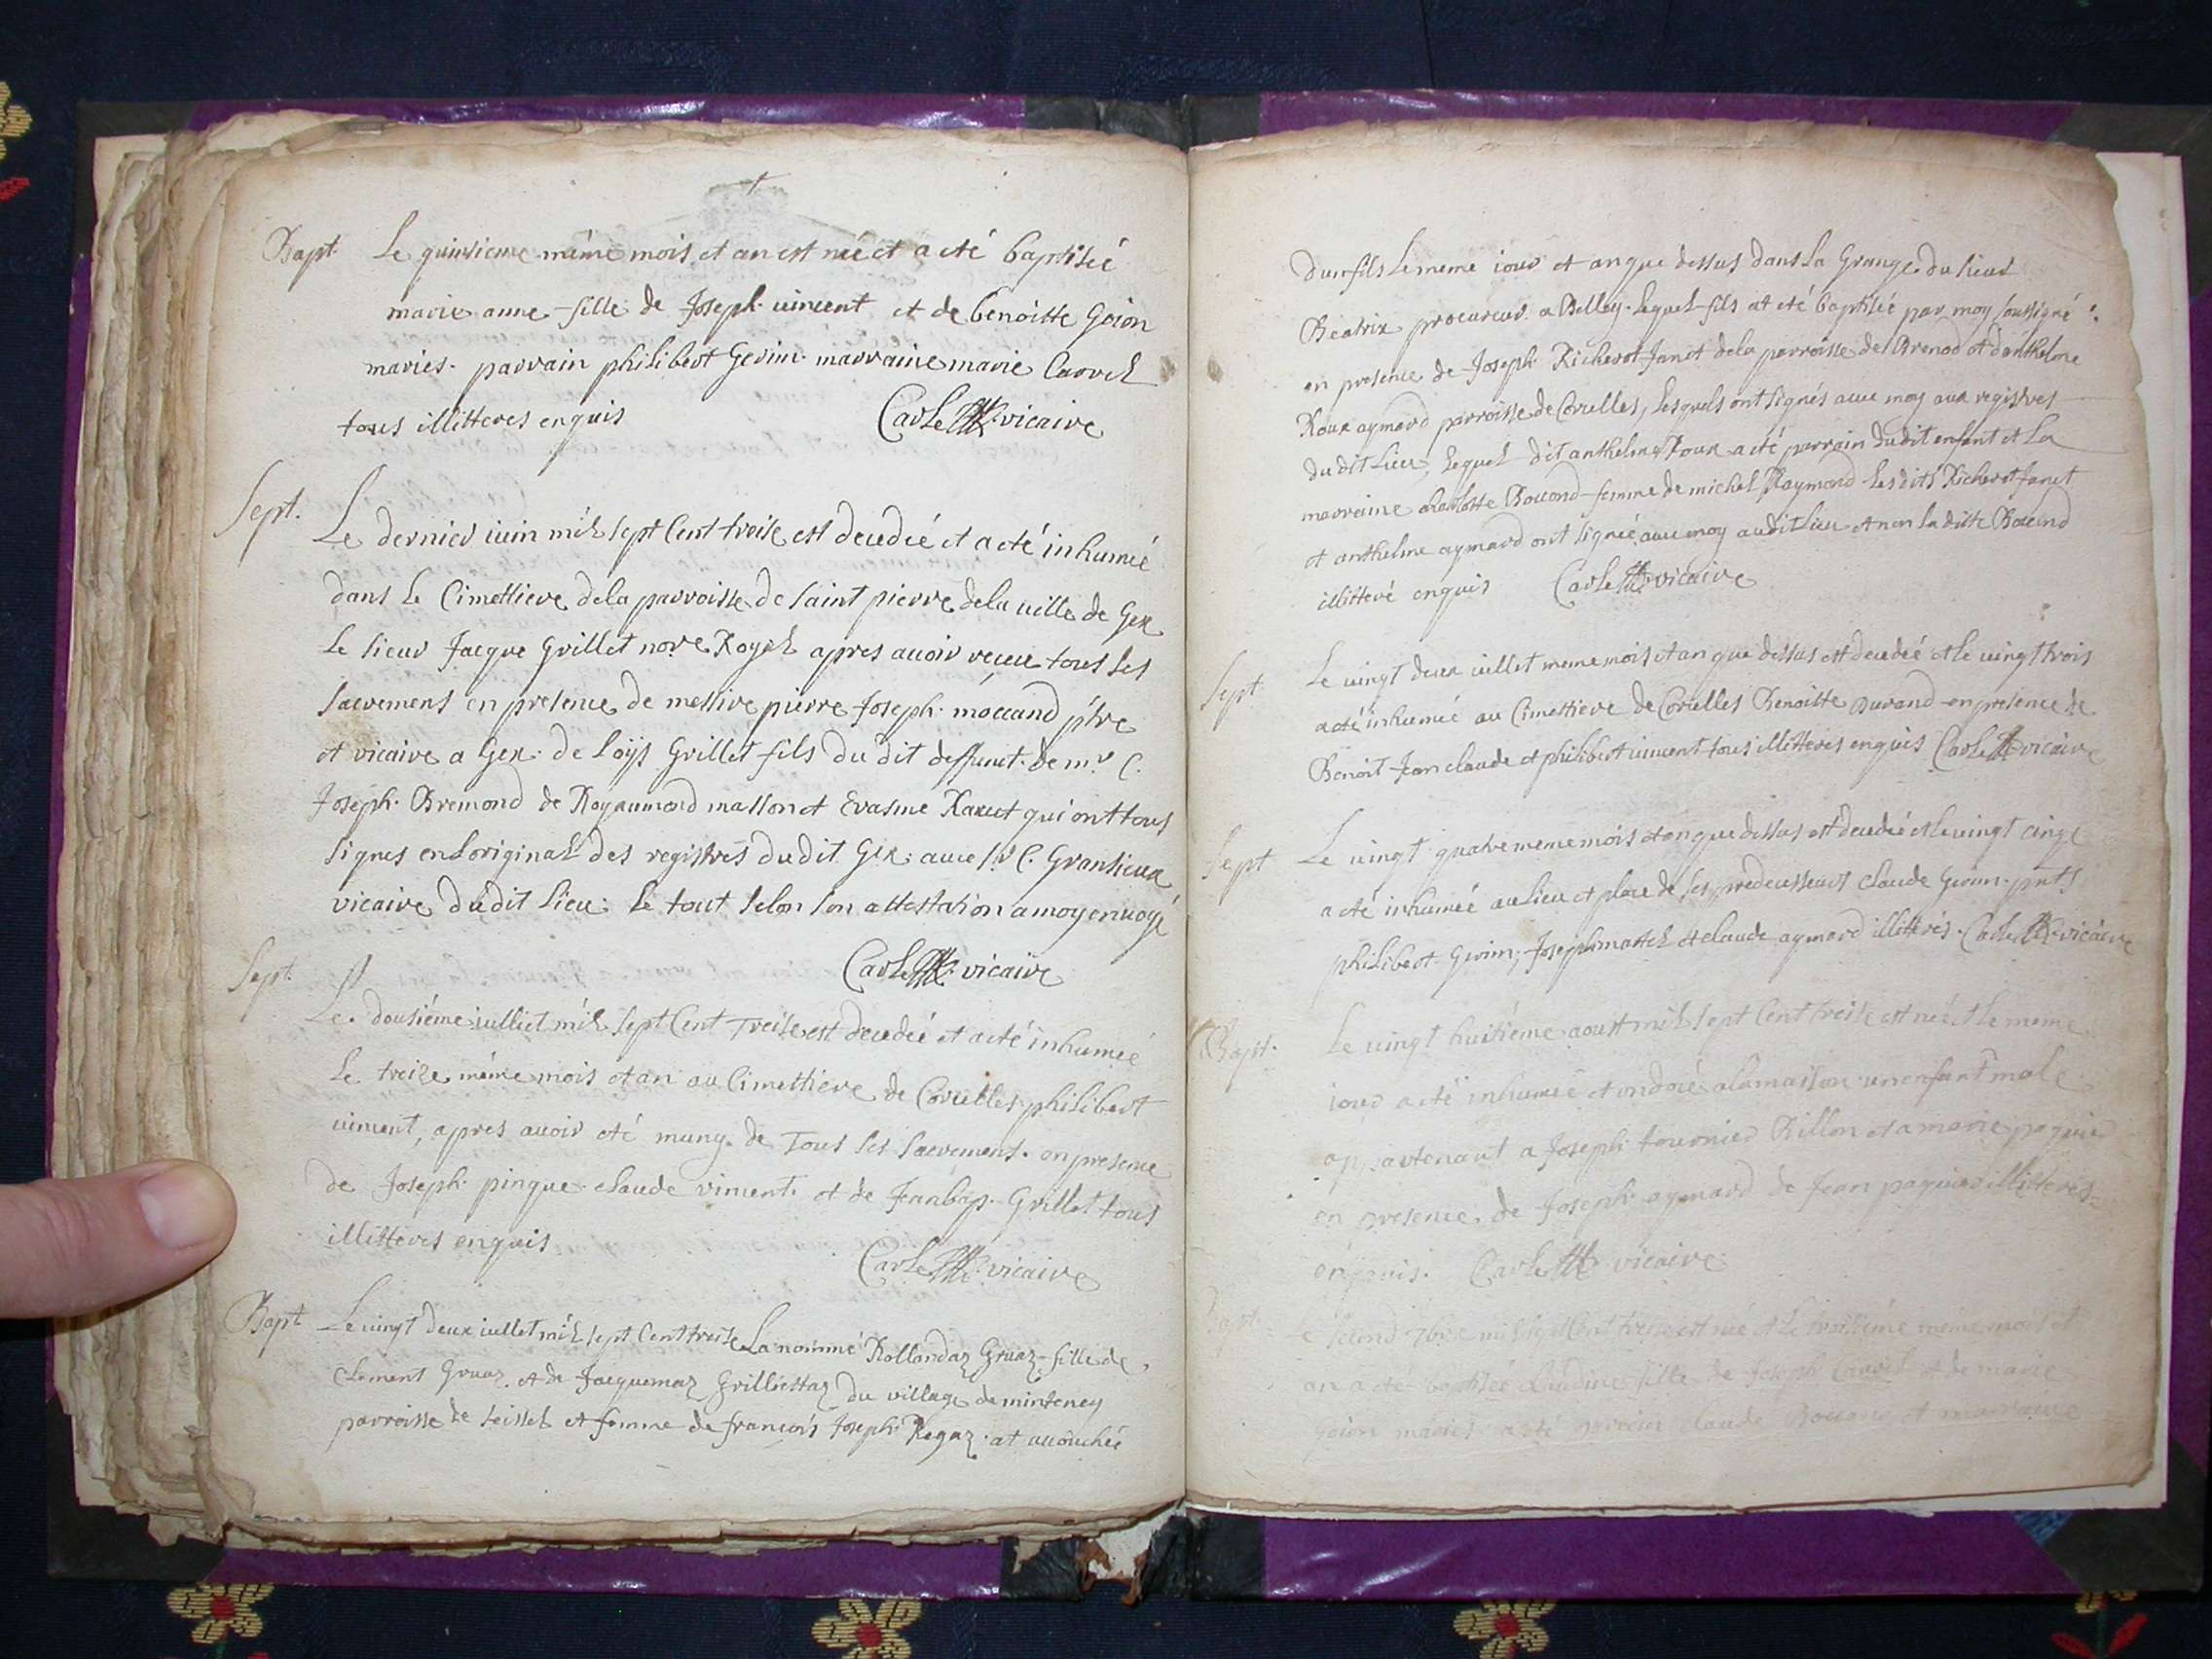 Bapt. Le quinsieme même mois et an est née et a eté baptisée
marie anne fille de Joseph vincent et de benoitte Goion
mariés. parrain philibert Gevin marraine marie Carrel
tous illitteres enquis Carle vicaire
Sept. Le dernier iuin mil sept Cent treise est decedée et a eté inhumée
dans le Cimettiere de la parroisse de Saint pierre de la ville de Gex
le sieur Jacque Grillet nore Royal apres auoir receu tous les
sacrements en presence de messire pierre Joseph moccand ptre
et vicaire a Gex. de Loÿs Grillet fils du dit deffunct. de mr C.
Joseph Bremond de Royaumond masson et Erasme qui ont tous
signes en loriginal des registres du dit Gex. auec Sr C. Gransieux
vicaire du dit lieu. le tout selon son attestation a moy enuoyé
Carle vicaire
Sept. Le dousiéme iulliet mil sept Cent Treise est decedée et a eté inhumée
le treize même mois et an au Cimettiere de Corcelles philibert
vincent, apres auoir eté muny de Tous les Sacrements. en presence
de Joseph pingue claude vincent et de Jeanbap. Grillet tous
illitteres enquis Carle vicaire
Bapt Le vingt deux iullet mil sept Cent treise La nommé Rollandaz Gruaz fille de
Clement Gruaz et de Jacquemaz Grilliettaz du village de minteney
parroisse de seissel et femme de francois Joseph Regaz at accouchée
Dun fils le meme iour et an que dessus dans la Grange du sieur
Beatrix procureur a Belley. lequel fils at eté baptisée par moy soussigné
en presence de Joseph Richerot Janet de la parroisse de Brenod et danthelme
Roux aymard parroisse de Corcelles, lesquels ont signés auec moy aux registres
du dit Lieu, lequel dit anthelme Roux a eté parrain du dit enfant et la
marraine charlotte Bouond femme de michel Raymond les dits Richerot Janet
et anthelme aymard ont signée auec moy au dit lieu et non la ditte Bouond
illitteré enquis Carle vicaire
Sept. Le vingt deux iullet meme mois et an que dessus est decedée et le vingt trois
a eté inhumée au Cimettiere de Corcelles Benoitte Durand en presence de
Benoit Jean claude et philibert vincent tous illitteres enquis Carle vicaire
Sept Le vingt quatre meme mois et an que dessus est decedée et le vingt cinq
a eté inhumée au lieu et place de ses predecesseurs claude Gevin. pnts
philibert Gevin, Joseph martel et claude aymard illitterés. Carle vicaire
Bapt. Le vingt huitiéme aoust mil sept Cent treise est née et le meme
iour a eté inhumée et ondoiée a la maison un enfant male
appartenant a Joseph tournier Billon et a marie paquier
en presence de Joseph aymard de Jean paquier illitteres
enquis. Carle vicaire
Bapt. Le second 7bre mil sept Cent treise est née et le troisiéme meme mois et
an a eté baptisée Claudine fille de Joseph Carrel et de marie
goion mariés a eté parrain claude et marraine